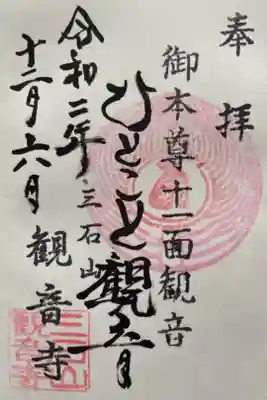 奉拝
御本尊十一面観音
ひとこと観音
三石山
観音寺
令和二年
十二月六日
三石山
観音寺